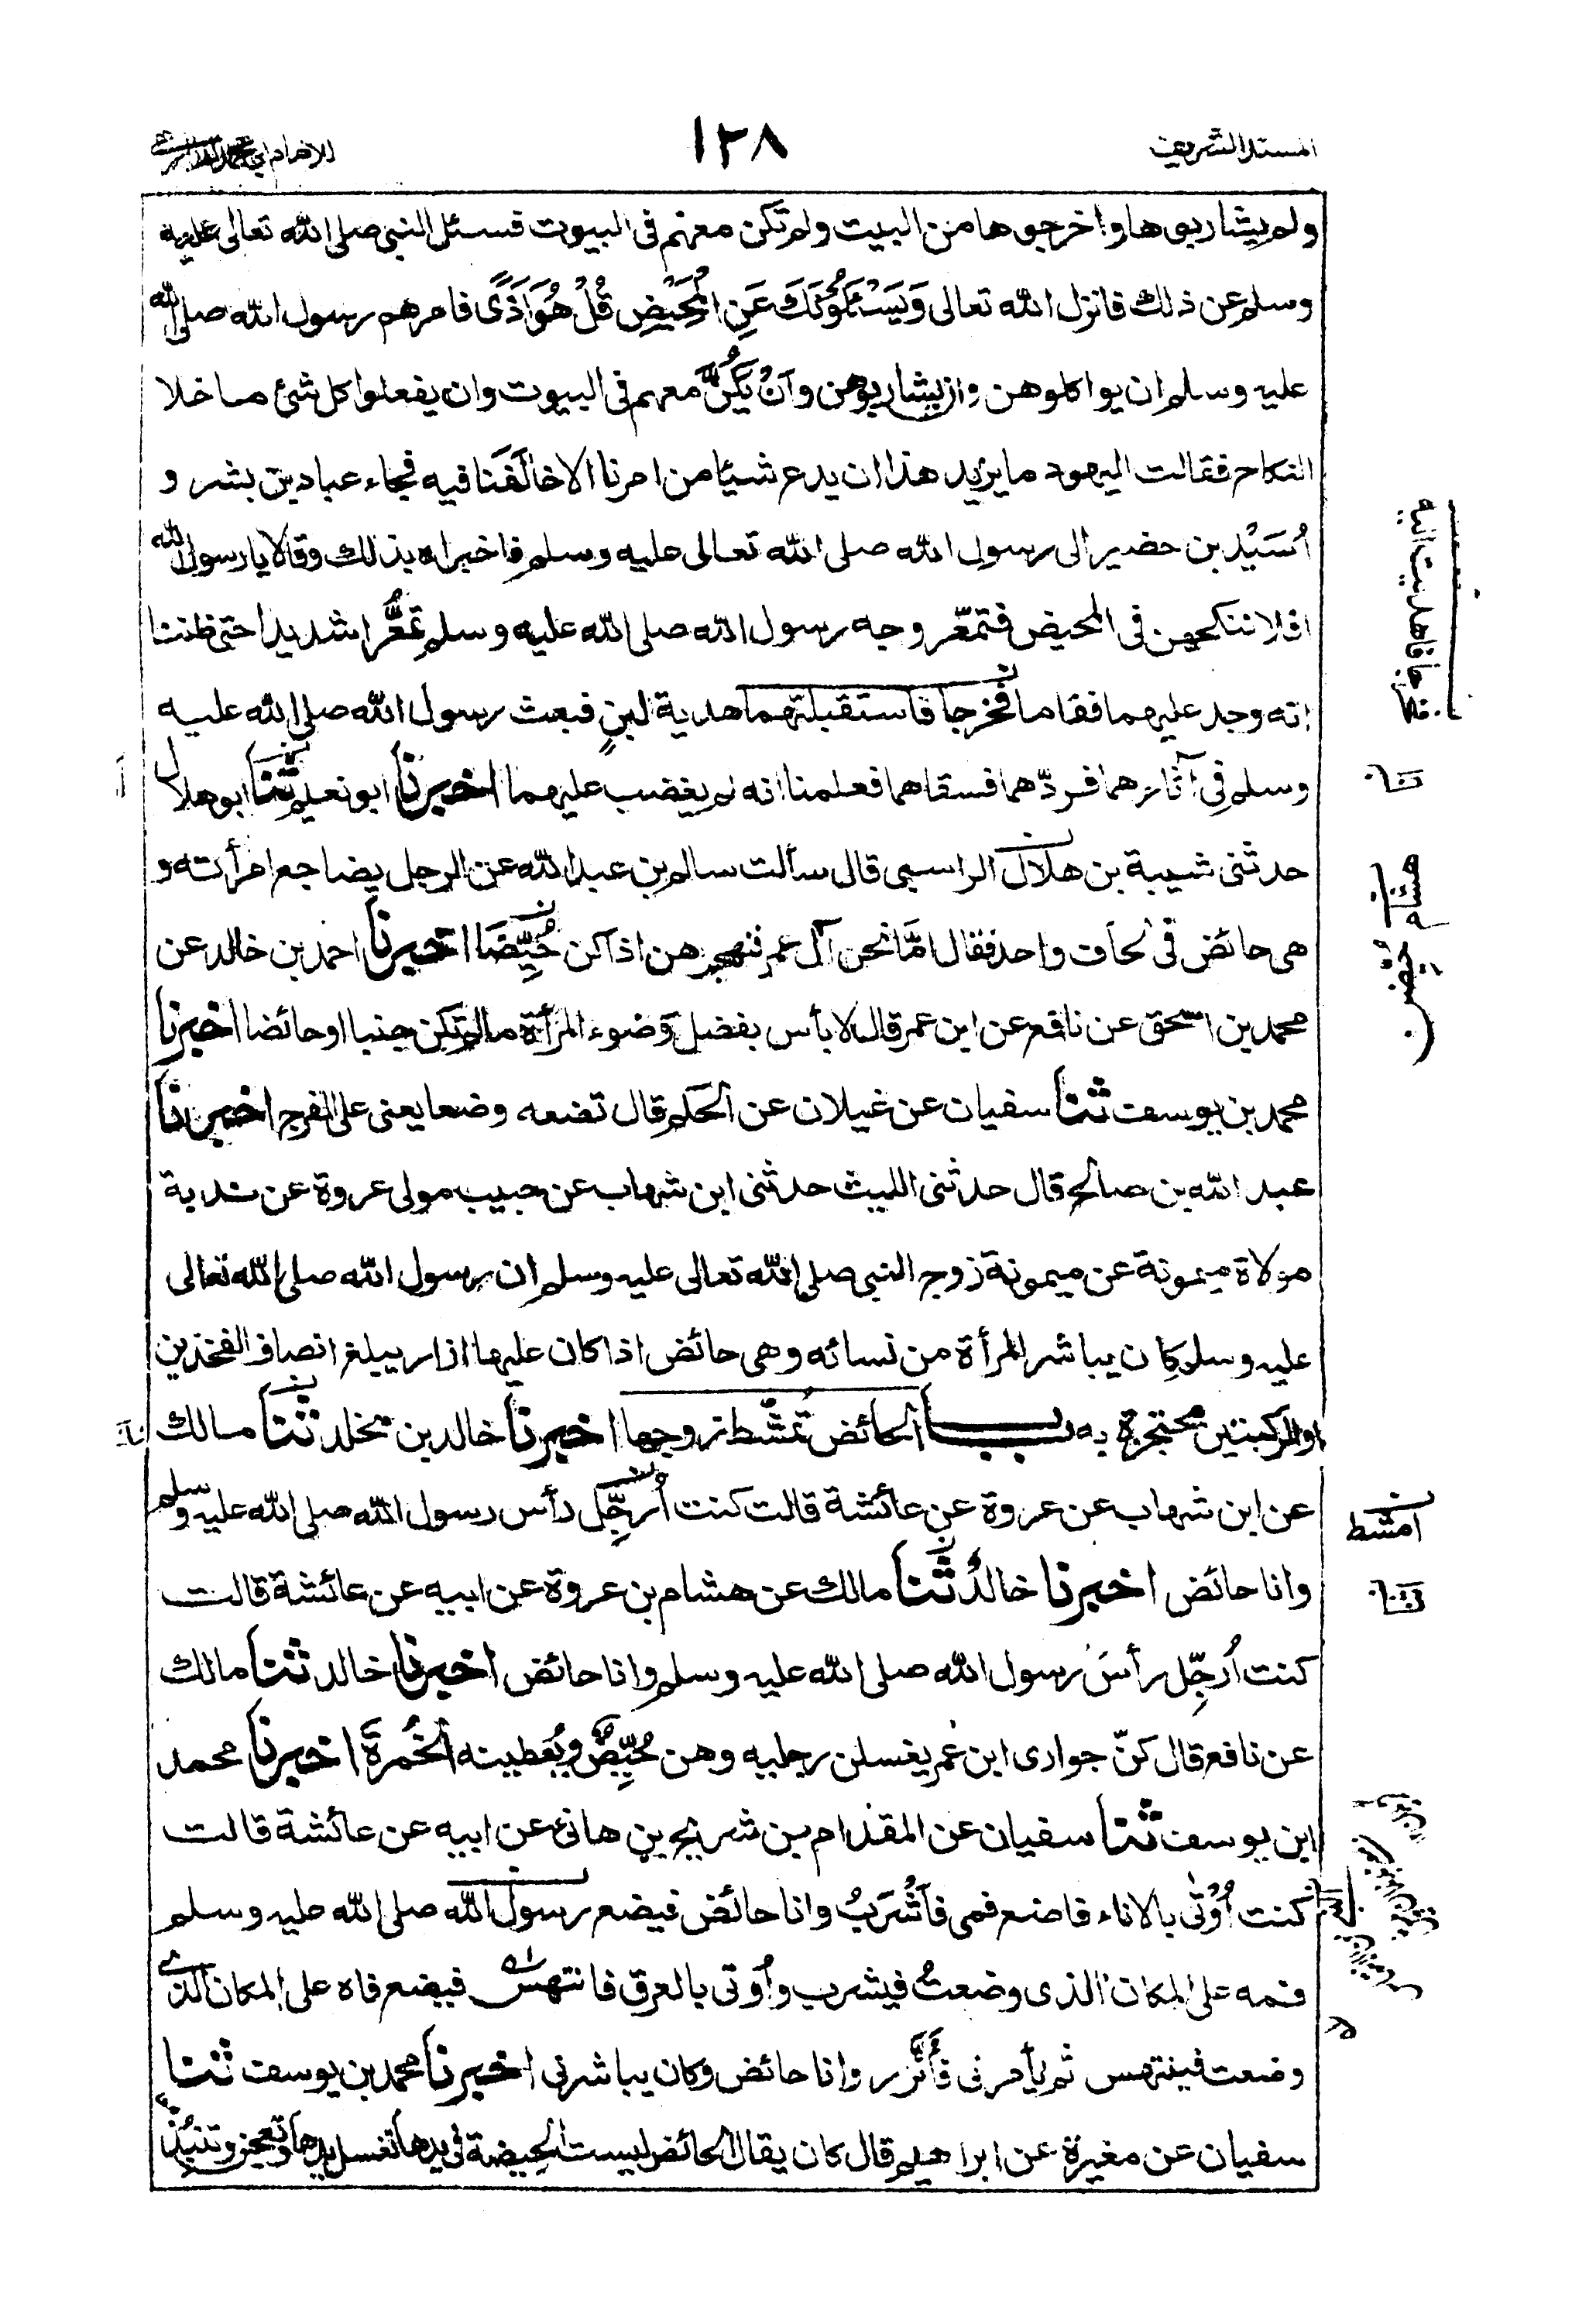 المسند الشريف
١٢٨
للامام ابي محمد
ولم يشاربوها واخرجوها من البيت ولم تكن معهم فى البيوت فسئل النبي صلى الله تعالى عليه
وسلم عن ذلك فانزل الله تعالى وَيَسْئَلُوْنَكَ عَنِ الْمَحِيْضِ قُلْ هُوَ اَذًى فامرهم رسول الله صلى الله
عليه وسلم ان يواكلوهن وان يشاربوهن وَاَنْ يَكُنَّ معهم فى البيوت وان يفعلوا كل شئ ما خلا
النكاح فقالت اليهود ما يريد هذا ان يدع شيئا من امرنا الا خالَفَنا فيه فجاء عباد بن بشر و
اُسَيْد بن حضير الى رسول الله صلى الله تعالى عليه وسلم فاخبراه بذلك وقالا يا رسول الله
افلا ننكحهن فى المحيض فتمعّر وجه رسول الله صلى الله عليه وسلم تمعُّرا شديدا حتى ظننا
انه وجد عليهما فقاما فخرجا فاستقبلتهما هدية لبنٍ فبعث رسول الله صلى الله عليه
وسلم فِى آثارهما فردّهما فسقاهما فعلمنا انه لم يغضب عليهما اخبرنا ابو نعيم ثَنَا ابو هلال
حدثنى شيبة بن هلال الراسبى قال سألت سالم بن عبد الله عن الرجل يضاجع امرأته و
هى حائض فى لحاف واحد فقال امَّا نحن آل عمر فنهجرهن اذا كن حُيَّضًا اخبرنا احمد بن خالد عن
محمد بن اسحق عن نافع عن ابن عمر قال لا بأس بفضل وَضوء المرأة ما لم تكن جنبا او حائضا اخبرنا
محمد بن يوسف ثنا سفيان عن غيلان عن الحَكم قال تضعه وضعا يعنى على الفرج اخبرنا
عبد الله بن صالح قال حدثنى الليث حدثنى ابن شهاب عن حبيب مولى عروة عن ندبة
مولاة ميمونة عن ميمونة زوج النبى صلى الله تعالى عليه وسلم ان رسول الله صلى الله تعالى
عليه وسلم كان يباشر المرأة من نسائه وهى حائض اذا كان عليها ازار يبلغ انصاف الفخذين
او الركبتين محتجزة به باب الحائض تُمَشِّط زوجها اخبرنا خالد بن مخلد ثنا مالك
عن ابن شهاب عن عروة عن عائشة قالت كنت اُرَجِّل رأس رسول الله صلى الله عليه وسلم
وانا حائض اخبرنا خالدٌ ثَنا مالك عن هشام بن عروة عن ابيه عن عائشة قالت
كنت اُرجِّل رأسَ رسول الله صلى الله عليه وسلم وانا حائض اخبرنا خالد ثنا مالك
عن نافع قال كنّ جوارى ابن عُمر يغسلن رجليه وهن حُيَّضٌ ويُعطينه الخُمرةَ اخبرنا محمد
ابن يوسف ثنا سفيان عن المقدام بن شريح بن هانئ عن ابيه عن عائشة قالت
كنت اُوْتٰى بالاناء فاضع فمى فاَشْرَبُ وانا حائض فيضع رسول الله صلى الله عليه وسلم
فمه على المكان الذى وضعتُ فيشرب واُوتى بالعرق فانتهس فيضع فاه على المكان الذى
وضعت فينتهس ثم يأمرنى فأتّزر وانا حائض وكان يباشرنى اخبرنا محمد بن يوسف ثنا
سفيان عن مغيرة عن ابراهيم قال كان يقال الحائض ليست الحيضة فى يدها تغسل يدها وتعجن وتنبذ
هشام
حيض
امشط